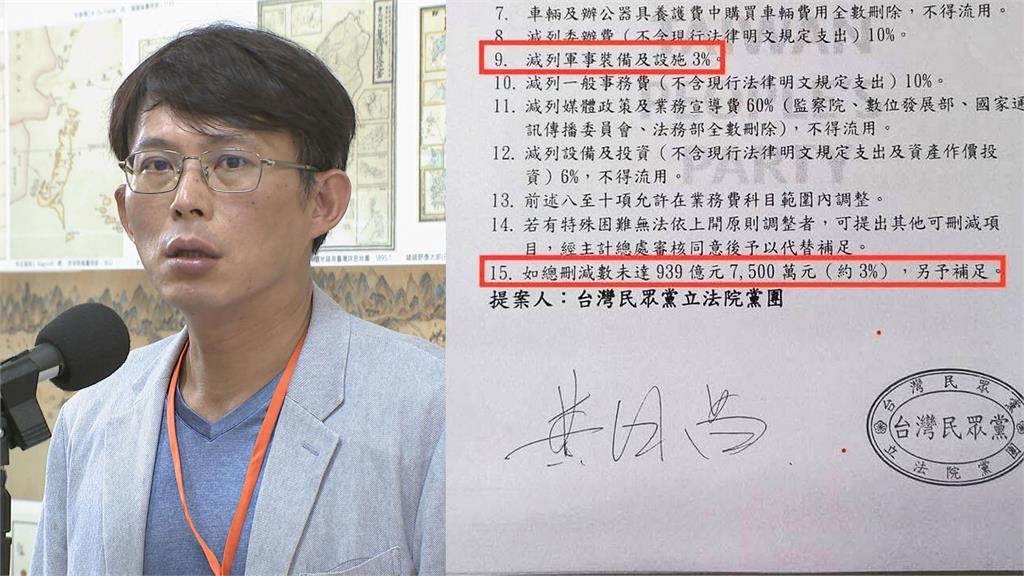 7. 車輛及辦公器具養護費中購買車輛費用全數刪除，不得流用。
8. 減列委辦費（不含現行法律明文規定支出）10%。
9. 減列軍事裝備及設施 3%。
10. 減列一般事務費（不含現行法律明文規定支出）10%。
11. 減列媒體政策及業務宣導費 60%（監察院、數位發展部、國家通
訊傳播委員會、法務部全數刪除），不得流用。
12. 減列設備及投資（不含現行法律明文規定支出及資產作價投
資）6%，不得流用。
13. 前述八至十項允許在業務費科目範圍內調整。
14. 若有特殊困難無法依上開原則調整者，可提出其他可刪減項
目，經主計總處審核同意後予以代替補足。
15. 如總刪減數未達 939 億元 7,500 萬元（約 3%），另予補足。
提案人：台灣民眾黨立法院黨團
黃國昌
台灣民眾黨
台灣民眾黨
立法院黨團
TAIWAN
PEOPLE'S
PARTY